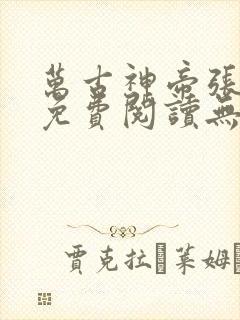 萬古神帝張
免費閱讀無
賈克拉 萊姆